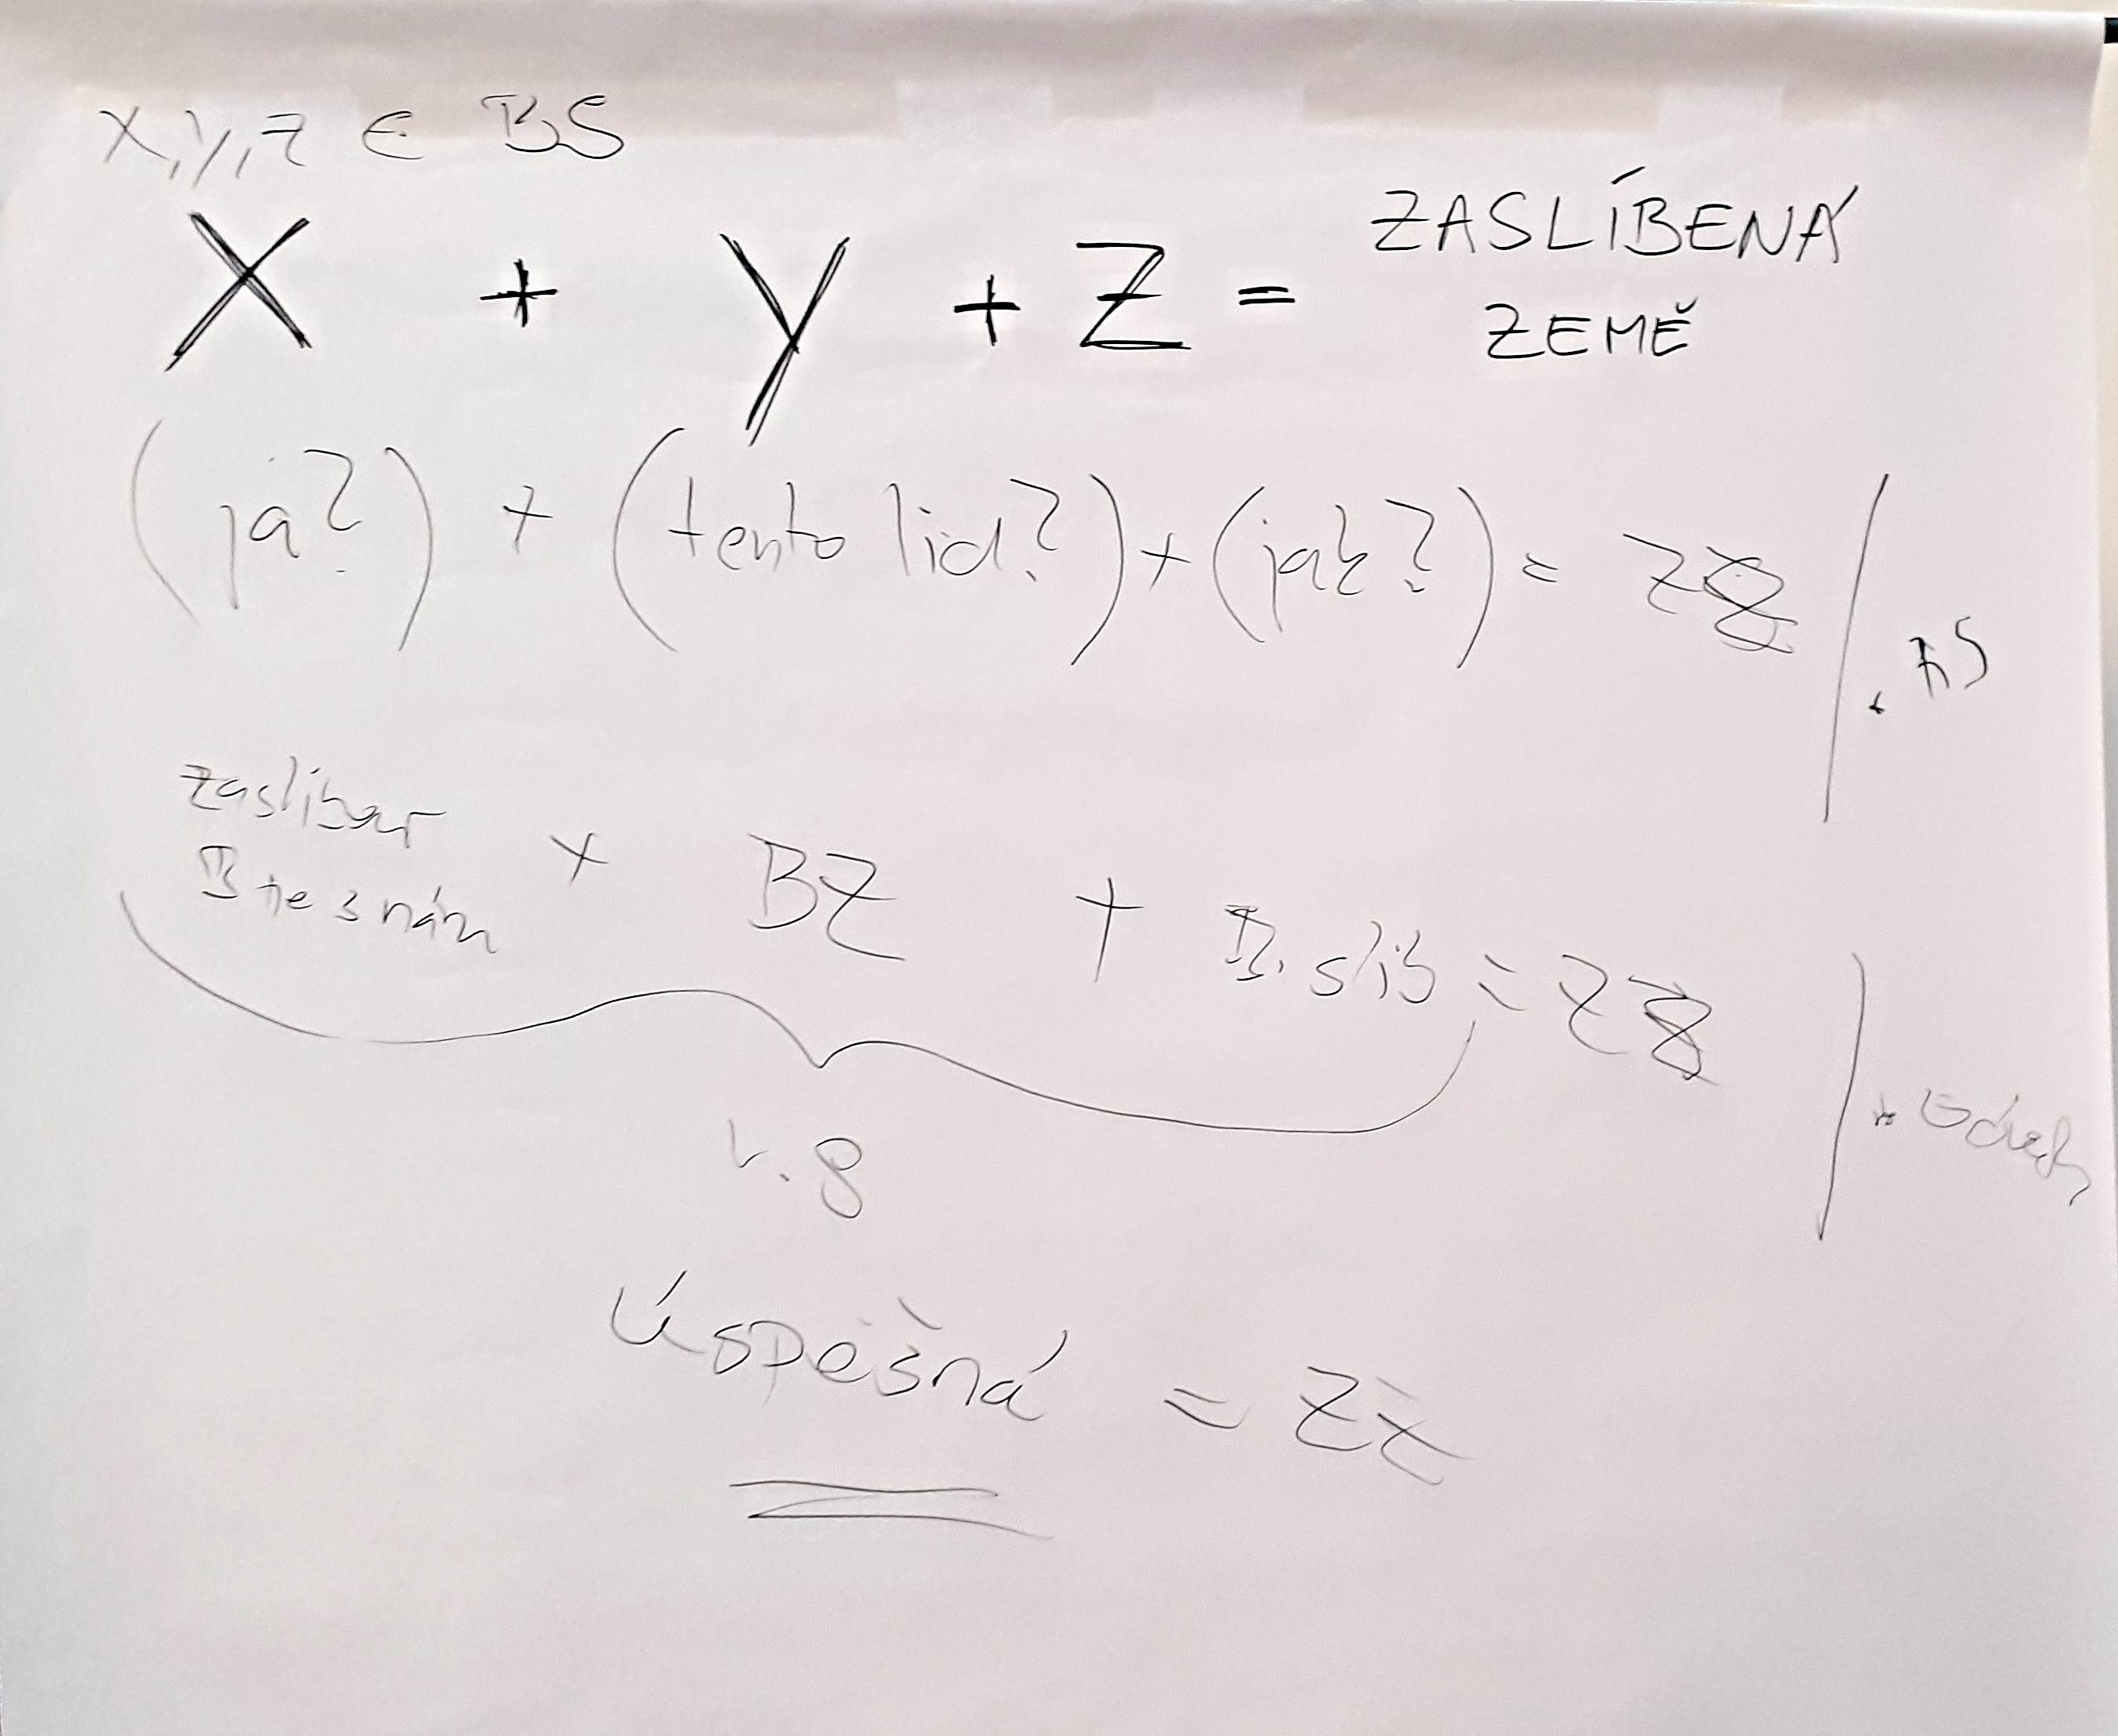 X, Y, Z ∈ BS
X + Y + Z = ZASLÍBENÁ
ZEMĚ
(já?) + (tento lid?) + (jak?) = ZZ / · BS
B je s nám + BZ + B. slib = ZZ
v. 8
Úspěšná = ZZ